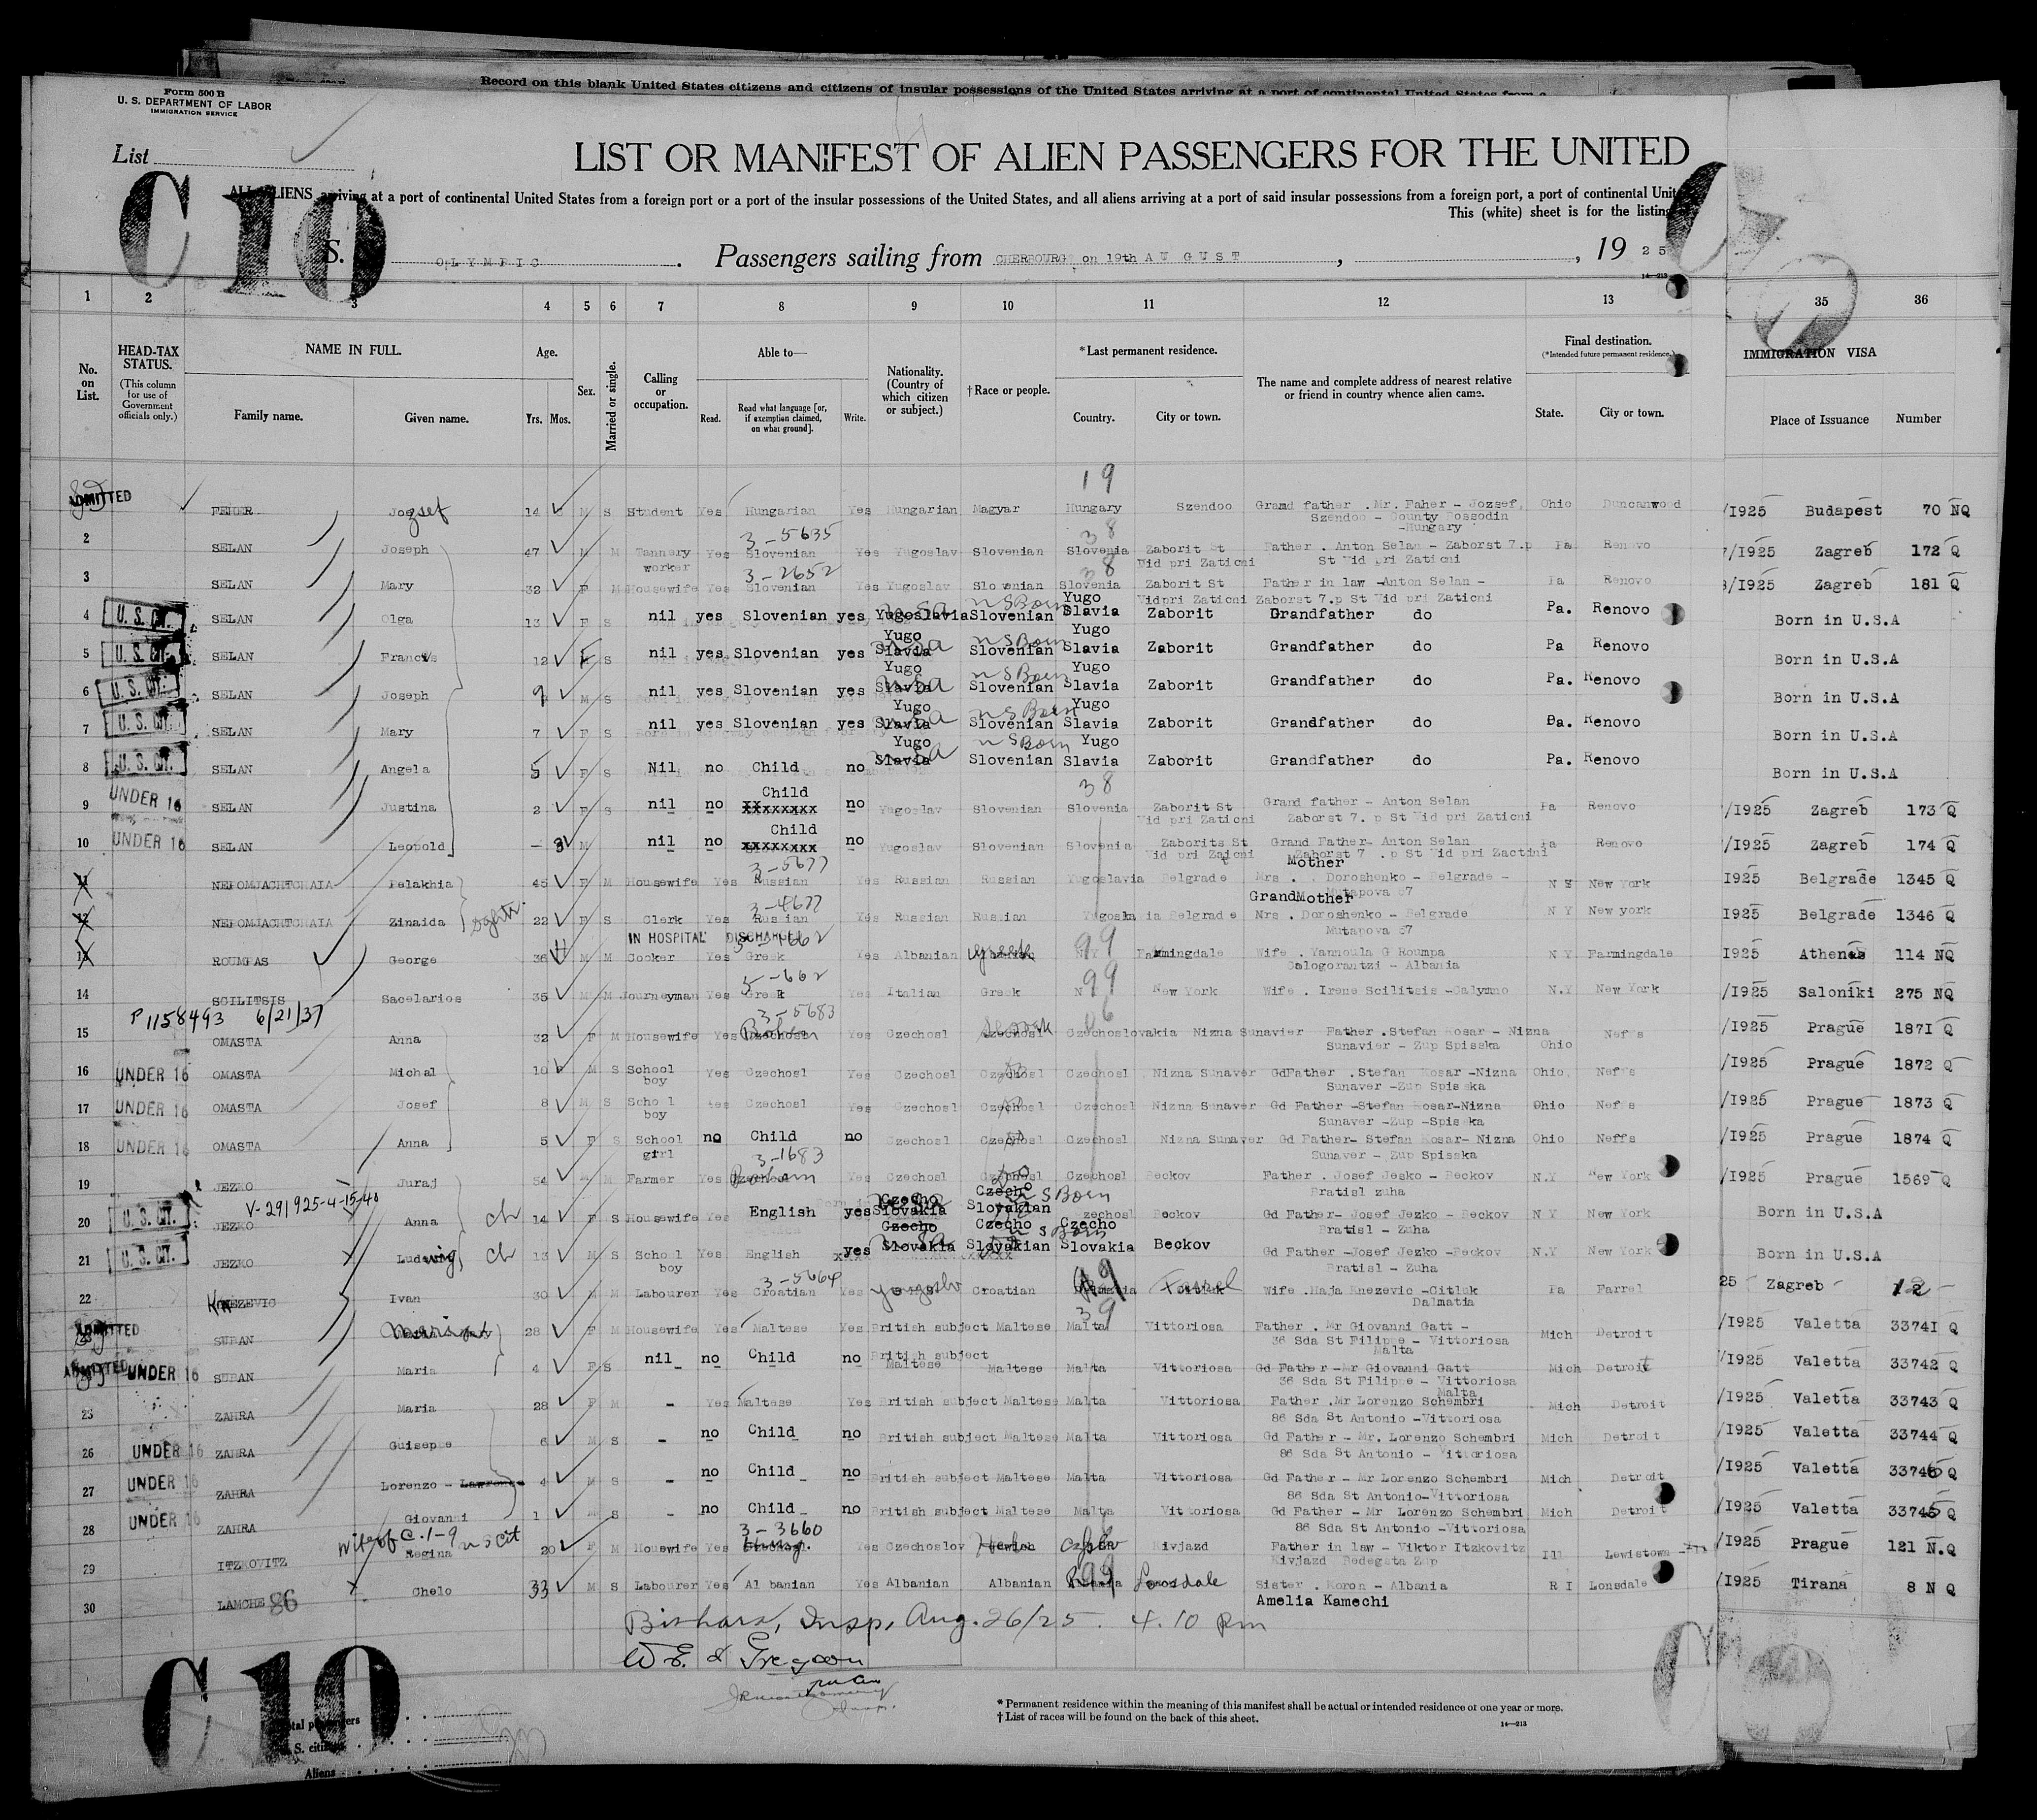 Record on this blank United States citizens and citizens of insular possessions of the United States arriving at a port of continental United States from a
Form 500 B
U. S. DEPARTMENT OF LABOR
IMMIGRATION SERVICE
List
LIST OR MANIFEST OF ALIEN PASSENGERS FOR THE UNITED
ALL ALIENS arriving at a port of continental United States from a foreign port or a port of the insular possessions of the United States, and all aliens arriving at a port of said insular possessions from a foreign port, a port of continental Unit
This (white) sheet is for the listing
C 10
S. OLYMPIC . Passengers sailing from CHERBOURG on 19th AUGUST , , 19 25
14—213
1 2 3 4 5 6 7 8 9 10 11 12 13 35 36
No. on List.
HEAD-TAX STATUS. (This column for use of Government officials only.)
NAME IN FULL.
Family name. Given name.
Age. Yrs. Mos.
Sex.
Married or single.
Calling or occupation.
Able to—
Read. Read what language [or, if exemption claimed, on what ground]. Write.
Nationality. (Country of which citizen or subject.)
†Race or people.
*Last permanent residence.
Country. City or town.
The name and complete address of nearest relative or friend in country whence alien came.
Final destination. (*Intended future permanent residence.)
State. City or town.
IMMIGRATION VISA
Place of Issuance Number
19
ADMITTED FEHER Jozsef 14 M S Student Yes Hungarian Yes Hungarian Magyar Hungary Szendoo Grand father . Mr. Faher - Jozsef, Ohio Duncanwood /1925 Budapest 70 NQ
Szendoo - County Bossodin
-Hungary
3-5635 38
2 SELAN Joseph 47 M M Tannery Yes Slovenian Yes Yugoslav Slovenian Slovenia Zaborit St Father . Anton Selan - Zaborst 7.p Pa Renovo 7/1925 Zagreb 172 Q
worker Vid pri Zaticni St Vid pri Zaticni
3-2652 38
3 SELAN Mary 32 F M Housewife Yes Slovenian Yes Yugoslav Slovenian Slovenia Zaborit St Father in law -Anton Selan - Pa Renovo 8/1925 Zagreb 181 Q
Vidpri Zaticni Zaborst 7.p St Vid pri Zaticni
4 U. S. CIT. SELAN Olga 13 F S nil yes Slovenian yes Yugoslavia Slovenian Yugo Slavia Zaborit Grandfather do Pa. Renovo Born in U.S.A
5 U. S. CIT. SELAN Francis 12 F S nil yes Slovenian yes Yugo Slavia Slovenian Yugo Slavia Zaborit Grandfather do Pa Renovo Born in U.S.A
6 U. S. CIT. SELAN Joseph 9 M S nil yes Slovenian yes Yugo Slavia Slovenian Yugo Slavia Zaborit Grandfather do Pa. Renovo Born in U.S.A
7 U. S. CIT. SELAN Mary 7 F S nil yes Slovenian yes Yugo Slavia Slovenian Yugo Slavia Zaborit Grandfather do Pa. Renovo Born in U.S.A
8 U. S. CIT. SELAN Angela 5 F S Nil no Child no Yugo Slavia Slovenian Yugo Slavia Zaborit Grandfather do Pa. Renovo Born in U.S.A
38
9 UNDER 16 SELAN Justina 2 F S nil no Child no Yugoslav Slovenian Slovenia Zaborit St Grand father - Anton Selan Pa Renovo /1925 Zagreb 173 Q
Vid pri Zaticni Zaborst 7. p St Vid pri Zaticni
10 UNDER 16 SELAN Leopold - 3 M nil no Child no Yugoslav Slovenian Slovenia Zaborits St Grand Father- Anton Selan Pa Renovo /1925 Zagreb 174 Q
Vid pri Zaicni Zaborst 7 .p St Vid pri Zactini
3-5677 Mother
11 NEPOMJACHTCHAIA Pelakhia 45 F M Housewife Yes Russian Yes Russian Russian Yugoslavia Belgrade Mrs . Doroshenko - Belgrade - N Y New York 1925 Belgrade 1345 Q
Mutapova 67
3-4677 GrandMother
12 NEPOMJACHTCHAIA Zinaida 22 F S Clerk Yes Russian Yes Russian Russian Yugoslavia Belgrade Mrs . Doroshenko - Belgrade N Y New york 1925 Belgrade 1346 Q
Mutapova 67
IN HOSPITAL DISCHARGED
13 ROUMPAS George 36 M M Cooker Yes Greek Yes Albanian Greek 99 N Y Farmingdale Wife . Yannoula G Roumpa N Y Farmingdale 1925 Athenes 114 NQ
Cologorantzi - Albania
5-662
14 SCILITSIS Sacelarios 35 M M Journeyman Yes Greek Yes Italian Greek 99 New York Wife . Irene Scilitsis -Calymno N.Y New York /1925 Saloniki 275 NQ
P 1158493 6/21/37 3-5683
15 OMASTA Anna 32 F M Housewife Yes Yes Czechosl Czechoslovakia Nizna Sunavier Father .Stefan Kosar - Nizna Ohio Neffs /1925 Prague 1871 Q
Sunavier - Zup Spisska
16 UNDER 16 OMASTA Michal 10 M S School boy Yes Czechosl Yes Czechosl Czechosl Czechosl Nizna Sunaver GdFather .Stefan Kosar -Nizna Ohio, Neffs /1925 Prague 1872 Q
Sunaver -Zup Spisska
17 UNDER 16 OMASTA Josef 8 M S School boy Yes Czechosl Yes Czechosl Czechosl Czechosl Nizna Sunaver Gd Father -Stefan Kosar-Nizna Ohio Neffs /1925 Prague 1873 Q
Sunaver -Zup -Spisska
18 UNDER 16 OMASTA Anna 5 F S School girl no Child no Czechosl Czechosl Czechosl Nizna Sunaver Gd Father- Stefan Kosar- Nizna Ohio Neffs /1925 Prague 1874 Q
Sunaver - Zup Spisska
3-1683
19 JEZKO Juraj 54 M M Farmer Yes Yes Czechosl Czechosl Czechosl Beckov Father . Josef Jesko - Beckov N.Y New York /1925 Prague 1569 Q
Bratisl zuha
V-291925-4-15-40
20 U. S. CIT. JEZKO Anna ch 14 F S Housewife Yes English yes Czecho Slovakia Czecho Slovakian Czechosl Beckov Gd Father- Josef Jezko - Beckov N Y New York Born in U.S.A
Bratisl - Zuha
21 U. S. CIT. JEZKO Ludwing ch 13 M S School boy Yes English yes Czecho Slovakia Czecho Slovakian Czecho Slovakia Beckov Gd Father -Josef Jezko -Beckov N.Y New York Born in U.S.A
Bratisl - Zuha
3-5664
22 KNEZEVIC Ivan 30 M M Labourer Yes Croatian Yes Yougoslv Croatian 99 Wife .Haja Knezevic -Citluk Pa Farrel 25 Zagreb 12 -
Dalmatia
39
ADMITTED SUBAN 28 F M Housewife Yes Maltese Yes British subject Maltese Malta Vittoriosa Father . Mr Giovanni Gatt - Mich Detroit /1925 Valetta 33741 Q
36 Sda St Filippe - Vittoriosa
Malta
ADMITTED UNDER 16 SUBAN Maria 4 F S nil no Child no British subject Maltese Maltese Malta Vittoriosa Gd Father -Mr Giovanni Gatt Mich Detroit /1925 Valetta 33742 Q
36 Sda St Filippe - Vittoriosa
Malta
25 ZAHRA Maria 28 F M - Yes Maltese Yes British subject Maltese Malta Vittoriosa Father .Mr Lorenzo Schembri Mich Detroit /1925 Valetta 33743 Q
86 Sda St Antonio -Vittoriosa
26 UNDER 16 ZAHRA Guiseppe 6 M S - no Child no British subject Maltese Malta Vittoriosa Gd Father - Mr. Lorenzo Schembri Mich Detroit /1925 Valetta 33744 Q
86 Sda St Antonio - Vittoriosa
27 UNDER 16 ZAHRA Lorenzo - Lawrence 4 M S - no Child no British subject Maltese Malta Vittoriosa Gd Father - Mr Lorenzo Schembri Mich Detroit /1925 Valetta 33746 Q
86 Sda St Antonio-Vittoriosa
28 UNDER 16 ZAHRA Giovanni 1 M S - no Child no British subject Maltese Malta Vittoriosa Gd Father - Mr Lorenzo Schembri Mich Detroit /1925 Valetta 33745 Q
86 Sda St Antonio -Vittoriosa
wife of C.1-9 u s cit 3-3660
29 ITZKOVITZ Regina 20 F M Housewife Yes Hung. Yes Czechoslov Kivjazd Father in law - Viktor Itzkovitz Ill Lewistown /1925 Prague 121 N.Q
Kivjazd Bedegsta Zup
30 LAMCHE 86 Chelo 33 M S Labourer Yes Albanian Yes Albanian Albanian 99 Lonsdale Sister . Koron - Albania R I Lonsdale /1925 Tirana 8 N Q
Amelia Kamechi
Bishara, Insp, Aug. 26/25. 4.10 pm
C 10
Total passengers
U. S. citizens
Aliens
* Permanent residence within the meaning of this manifest shall be actual or intended residence of one year or more.
† List of races will be found on the back of this sheet.
14—213